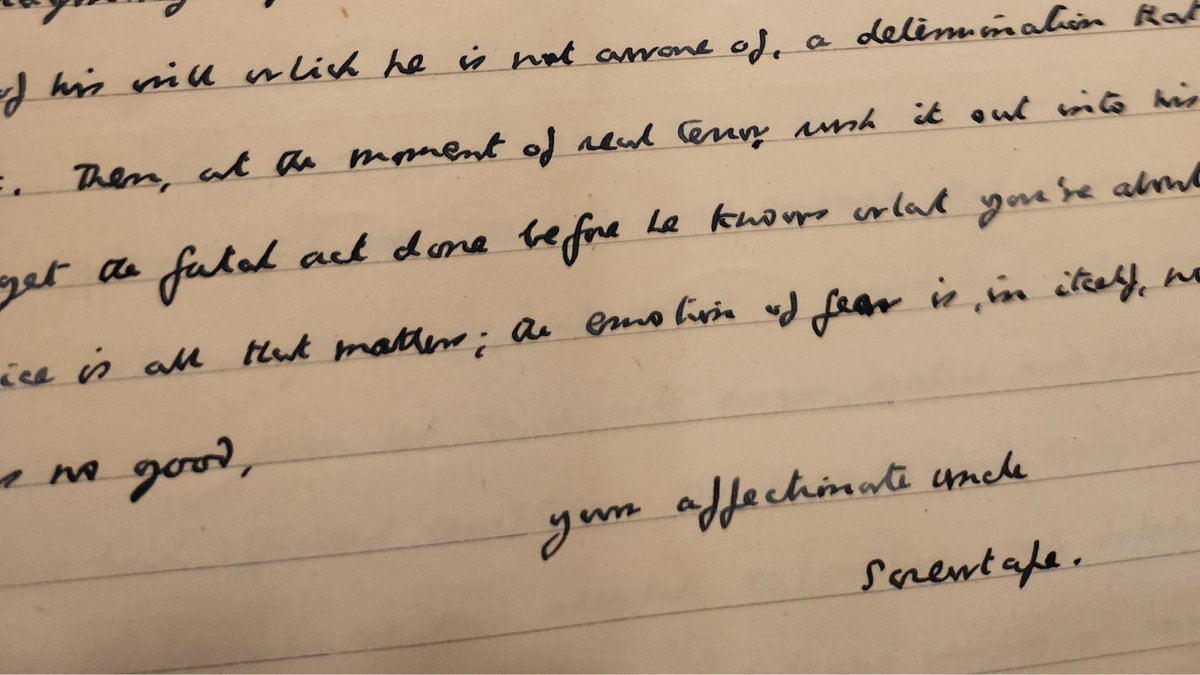 of his will which he is not aware of, a determination that
. Then, at the moment of real terror, rush it out into his
get the fatal act done before he knows what you're about
ice is all that matters; the emotion of fear is, in itself, no
no good,
your affectionate uncle
Screwtape.